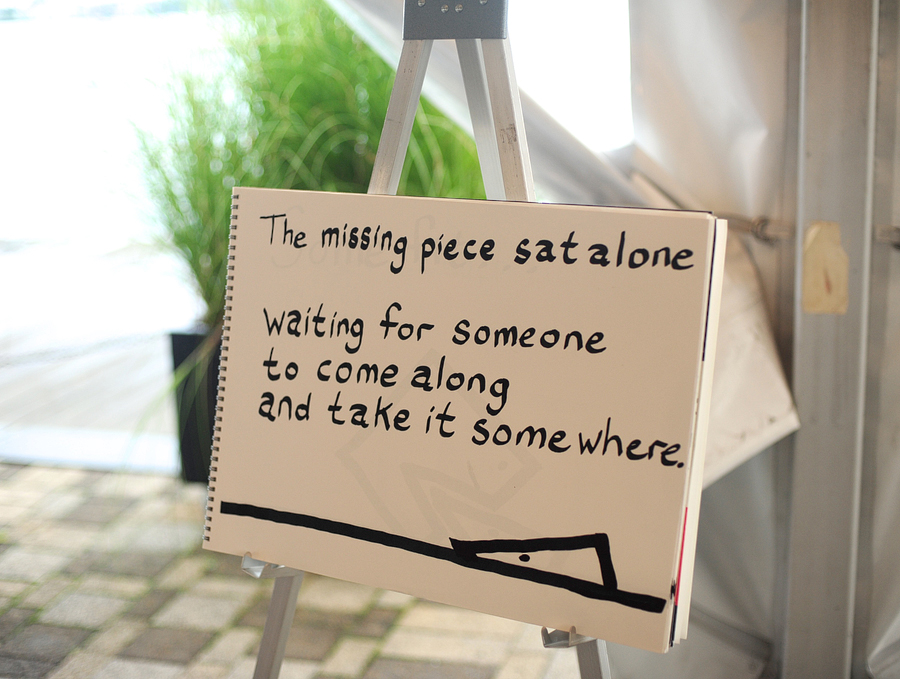 The missing piece sat alone
waiting for someone
to come along
and take it somewhere.